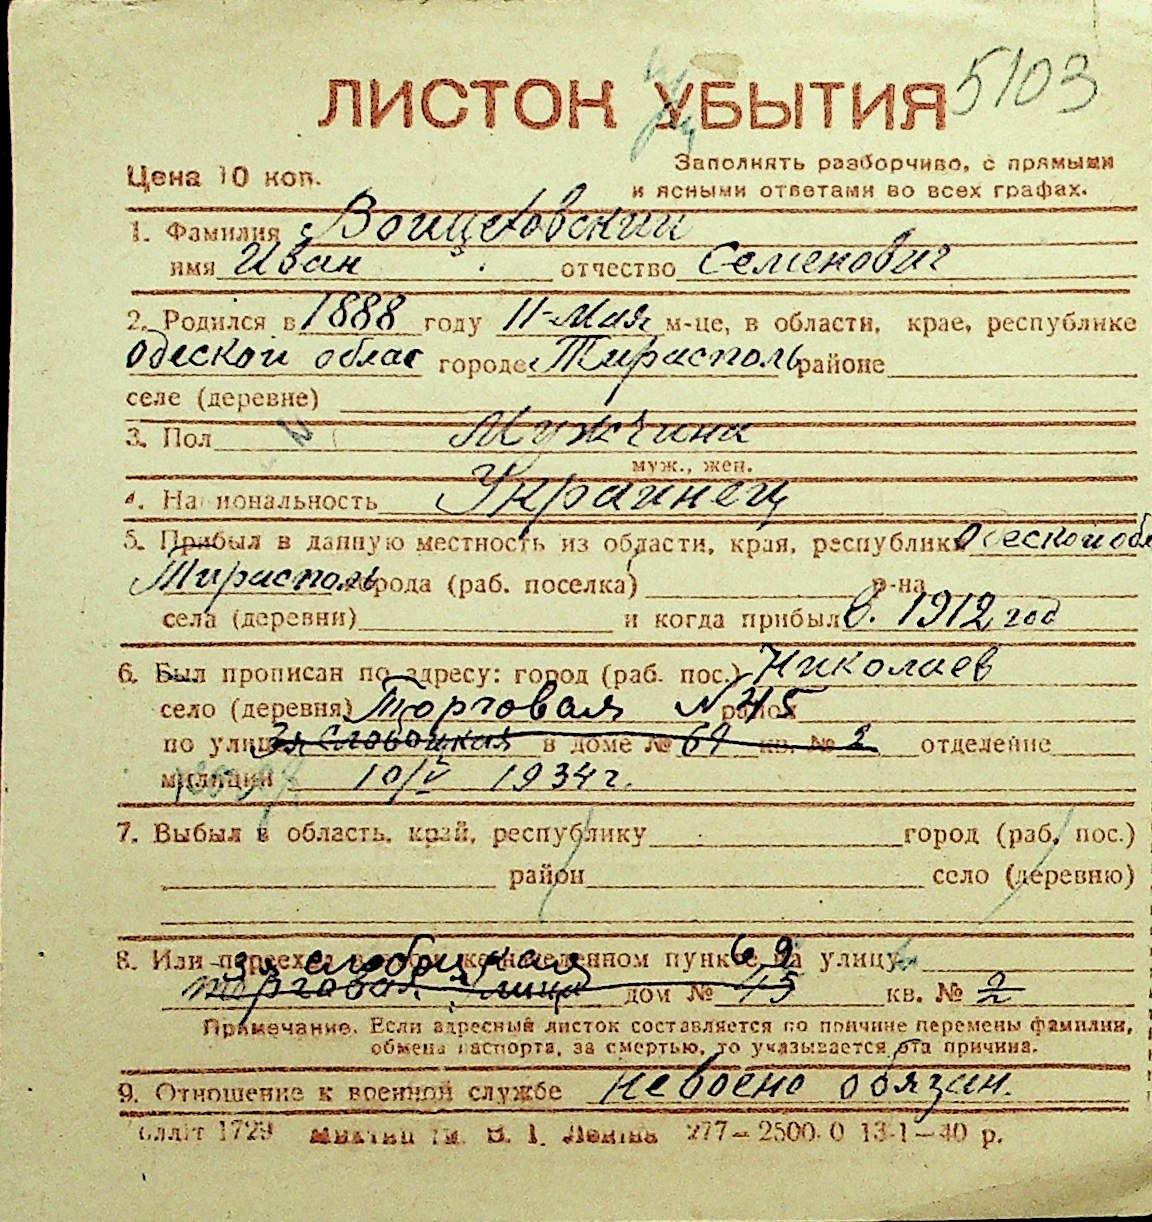 5103
ЛИСТОК УБЫТИЯ
Цена 10 коп.
Заполнять разборчиво, с прямыми
и ясными ответами во всех графах.
1. Фамилия Войцеховский
имя Иван отчество Семенович
2. Родился в 1888 году 11-Мая м-це, в области, крае, республике
Одеской облас городе Тирасполь районе
селе (деревне)
3. Пол Мужчина
муж., жен.
4. Национальность Украинец
5. Прибыл в данную местность из области, края, республики Одеской обл
Тирасполь города (раб. поселка) р-на
села (деревни) и когда прибыл в. 1912 год
6. Был прописан по адресу: город (раб. пос.) Николаев
село (деревня) Торговая N 45 район
по улице 3я Слободская в доме № 69 кв. № 2 отделение
милиции 10/V 1934 г.
7. Выбыл в область, край, республику город (раб. пос.)
район село (деревню)
8. Или переехал в том же населенном пункте на улицу
3я слободская 69
торговая улица дом № 45 кв. № 2
Примечание. Если адресный листок составляется по причине перемены фамилии,
обмена паспорта, за смертью, то указывается эта причина.
9. Отношение к военной службе невоено обязан.
1729 277—2500.0 13-1—40 р.